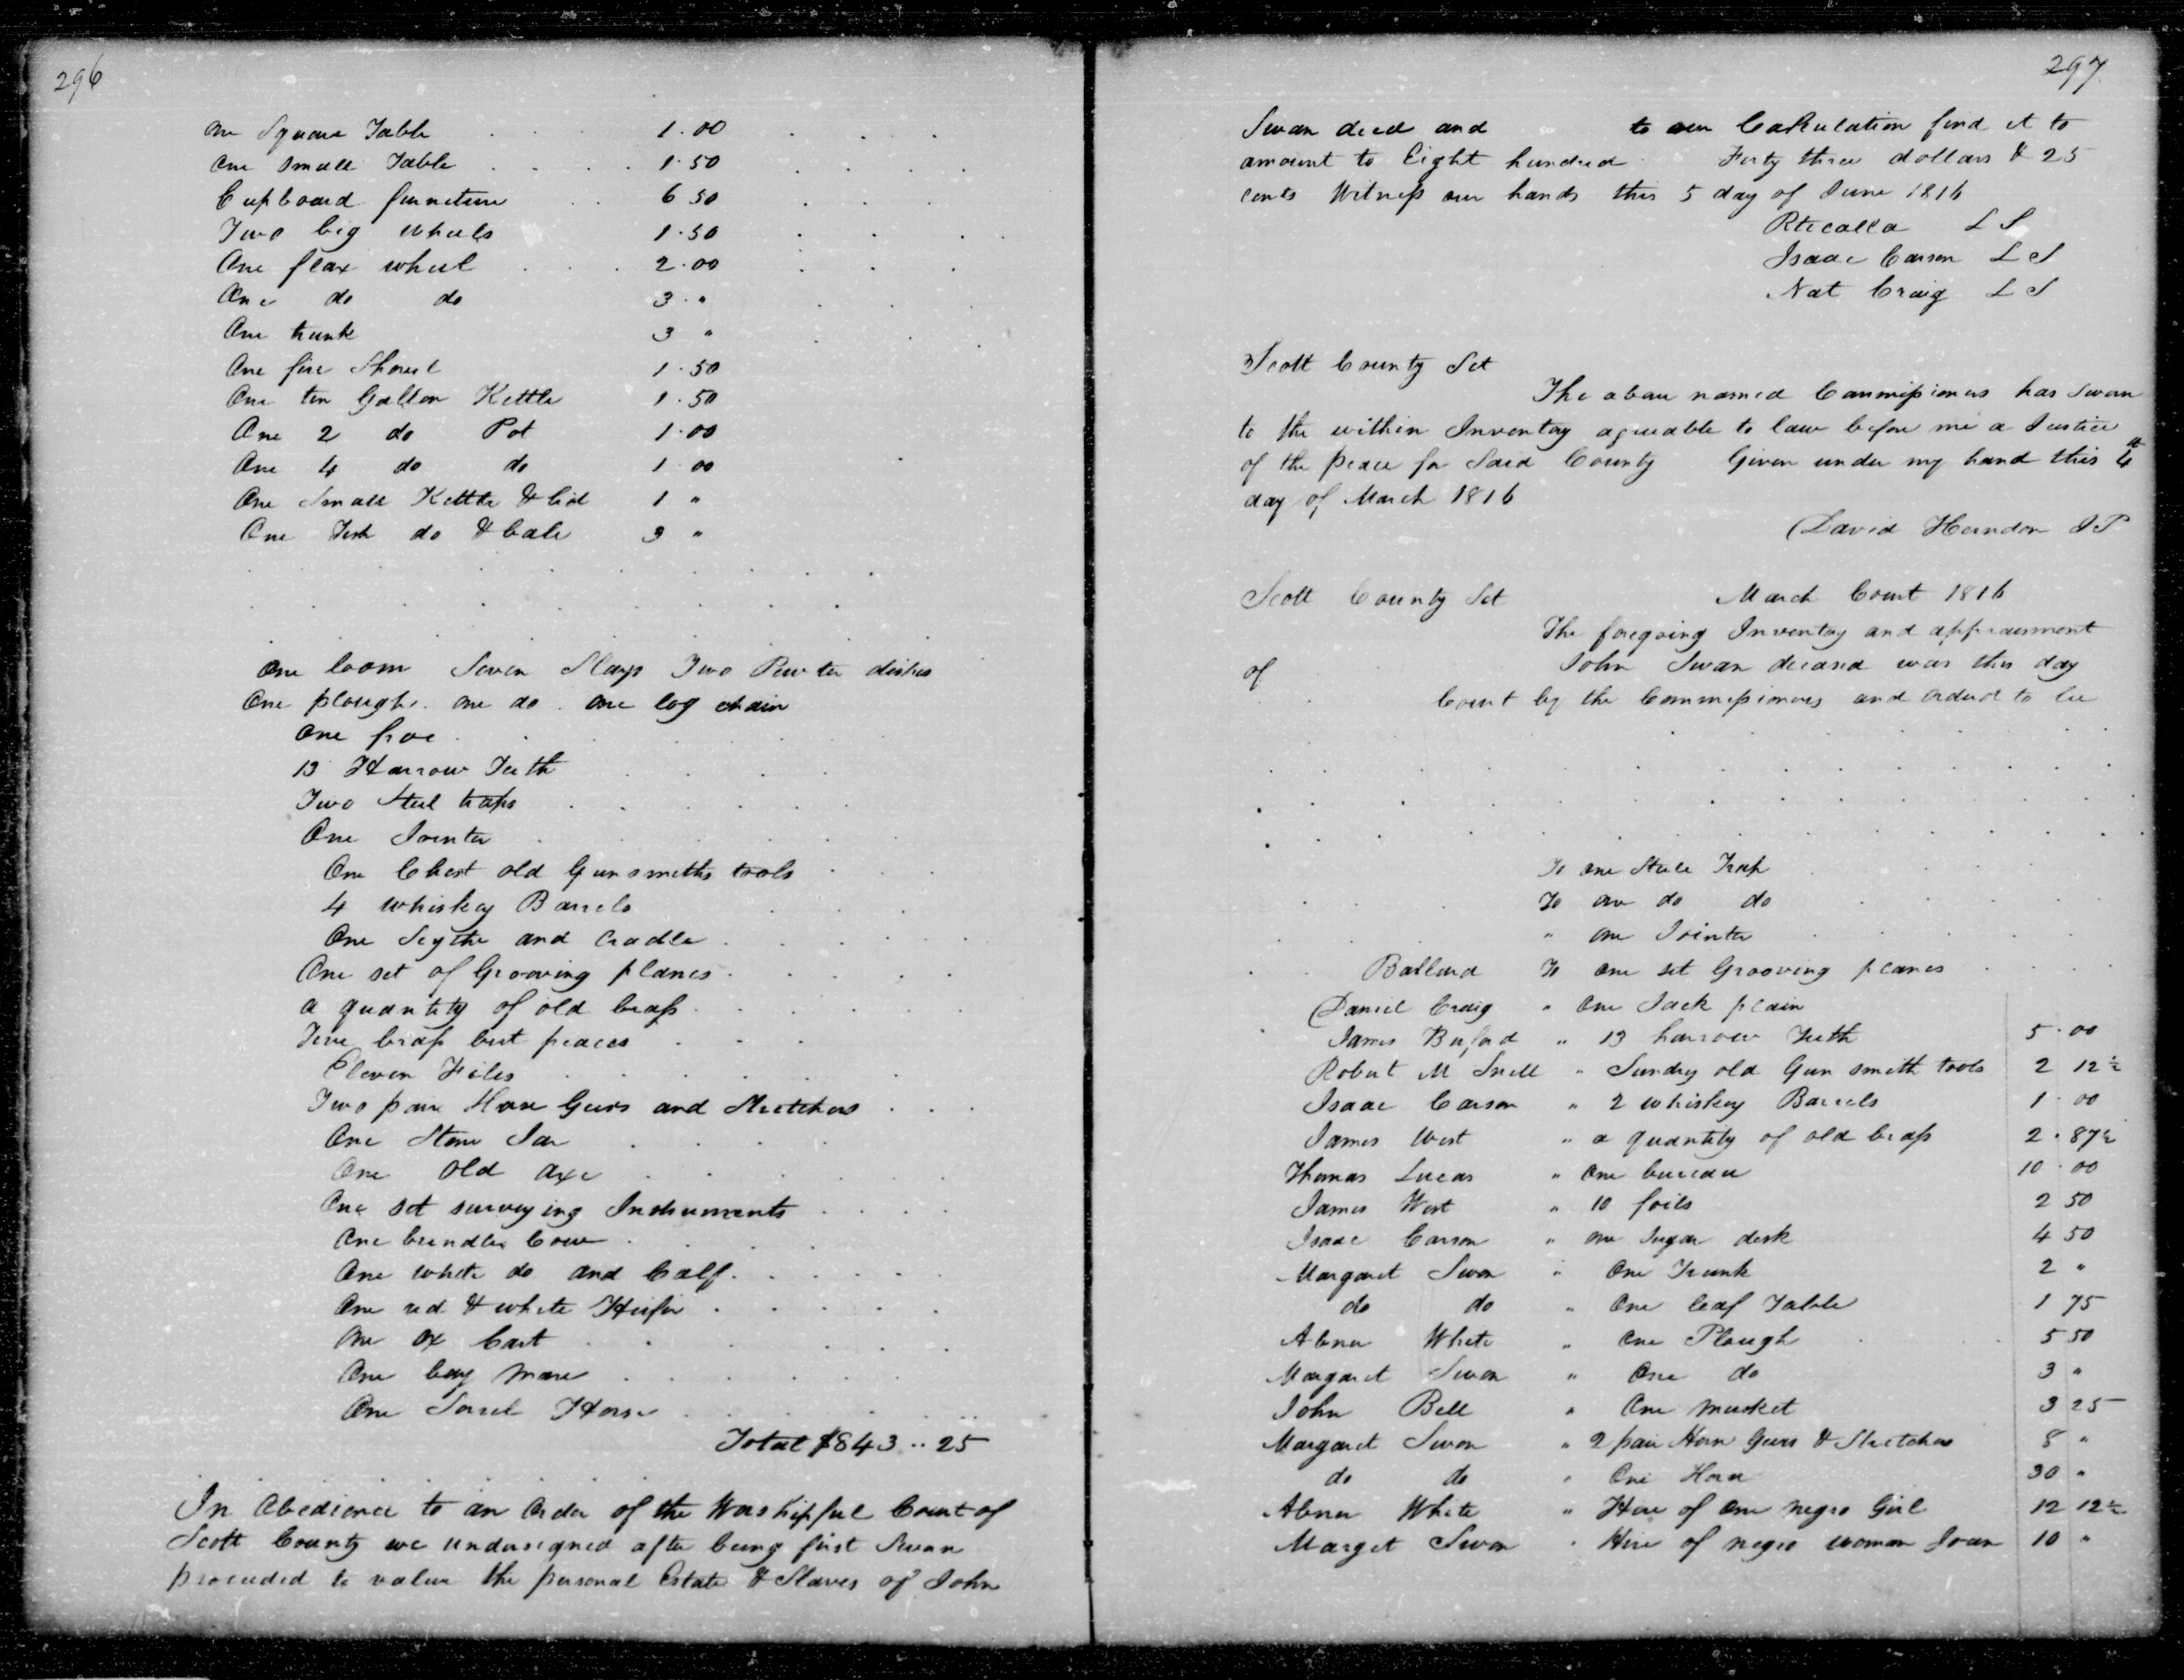 296
One Square Table 1.00
One small Table 1.50
Cupboard furneture 6 50
Two big wheels 1.50
One flax wheel 2.00
One do do 3 "
One trunk 3 "
One fire Shovel 1.50
One ten Gallon Kettle 1.50
One 2 do Pot 1.00
One 4 do do 1 00
One Small Kettle & lid 1 "
One do & bale 3 "
One loom Seven Slays Two Pewter dishes
One plough. one do. one log chain
One froe
13 Harrow Teeth
Two Steel traps
One Jointer
One Chest old Gunsmiths tools
4 whiskey Barrels
One Scythe and Cradle
One set of Grooving planes
a quantity of old brass
brass but peaces
Eleven Files
Two pair Horse Gears and Stretchers
One Stone Jar
One old axe
One set surveying Instruments
One brindle Cow
One white do and Calf
One red & white Heifer
One ox Cart
One bay Mare
One Sorrel Horse
Total $843..25
In Obedience to an Order of the Worshipful Court of
Scott County we undersigned after being first Swan
proceeded to value the personal Estate & Slaves of John
297
Swan decd and to our Calculation find it to
amount to Eight hundred Forty three dollars & 25
cents Witness our hands this 5 day of June 1816
L S
Isaac Carson L S
Nat Craig L S
Scott County Sct
The above named Commissioners has Sworn
to the within Inventory agreable to law before me a Justice
of the peace for Said County Given under my hand this 4th
day of March 1816
David Herndon J P
Scott County Sct March Court 1816
The foregoing Inventory and appraisment
of John Swan deceased was this day
Court by the Commissioners and ordered to be
To one Steele Trap
To one do do
" one Jointer
Ballard To one set Grooving planes
Daniel Craig " One Jack plain
James Buford " 13 harrow Teeth 5.00
Robert M Snell " Sundry old Gun smith tools 2 12½
Isaac Carson " 2 whiskey Barrels 1.00
James West " a quantity of old brass 2.87½
Thomas Lucas " One bureau 10.00
James West " 10 foils 2 50
Isaac Carson " one Sugar desk 4 50
Margaret Swon " One Trunk 2 "
do do " One leaf Table 1 75
Abner White " One Plough 5 50
Margaret Swon " One do 3 "
John Bell " One musket 3 25
Margaret Swon " 2 pair Horse Gears & Stretchers 8 "
do do " One Horse 30 "
Abner White " Hire of One negro Girl 12 12½
Marget Swon " Hire of negro woman Joan 10 "